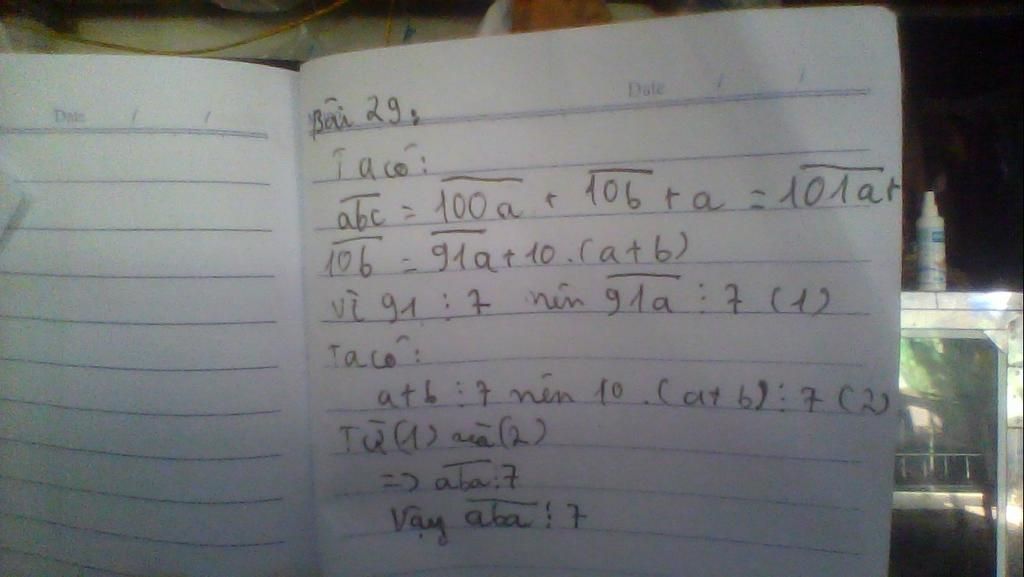 Date / /
Date / /
Bài 29:
Ta có:
\overline{abc} = \overline{100a} + \overline{10b} + a = \overline{101a} +
\overline{10b} = \overline{91a} + 10.(a+b)
Vì 91 ⋮ 7 nên \overline{91a} ⋮ 7 (1)
Ta có:
a+b ⋮ 7 nên 10.(a+b) ⋮ 7 (2)
Từ (1) và (2)
=> \overline{aba} ⋮ 7
Vậy \overline{aba} ⋮ 7